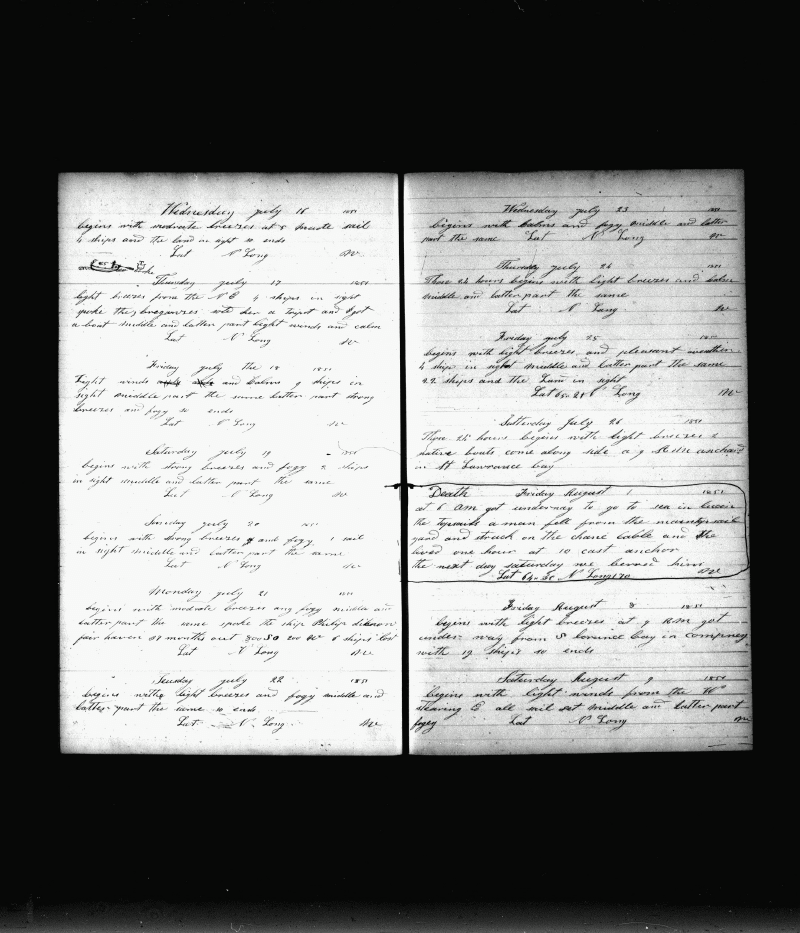 Wednesday July 16 1851
begins with moderate breezes at 8 made sail
4 ships and the land in sight so ends
Lat N Long
Thursday July 17 1851
light breezes from the N E 4 ships in sight
spoke the
a boat middle and latter part light winds and calm
Lat N Long
Friday July the 18 1851
Light winds and Calms 9 ships in
sight middle part the same latter part strong
breezes and fogy so ends
Lat N Long
Saturday July 19 1851
begins with strong breezes and fogy 2 ships
in sight middle and latter part the same
Lat N Long
Sunday July 20 1851
begins with strong breezes and fogy 1 sail
in sight middle and latter part the same
Lat N Long
Monday July 21 1851
begins with modrate breezes and fogy middle and
latter part the same spoke the ship Philip
fair haven months out 200 6 ships lost
Lat N Long
Tuesday July 22 1851
begins with light breezes and fogy middle and
latter part the same so ends
Lat N Long
Wednesday July 23 1851
begins with Calms and fogy middle and latter
part the same Lat N Long
Thursday July 24 1851
These 24 hours begins with light breezes and Calm
middle and latter part the same
Lat N Long
Friday July 25 1851
begins with light breezes and pleasant weather
4 ship in sight middle and latter part the same
22 ships and the Land in sight
Lat N Long
Satterday July 26 1851
These 24 hours begins with light breezes &
native boats come along side a 9 anchard
in St Lawrance bay
Death Friday August 1 1851
at 6 am got underway to go to sea in
the topsails a man fell from the maintopsail
yard and struck on the chane cable and the
lived one hour at 10 cast anchor
the next day saturday we berried him
Lat N Long 170
Friday August 8 1851
begins with light breezes at 9 A.M got
under way from S bay in compney
with 19 ships so ends
Saturday August 9 1851
begins with light winds from the W
stearing E all sail set middle and latter part
fogey Lat N Long